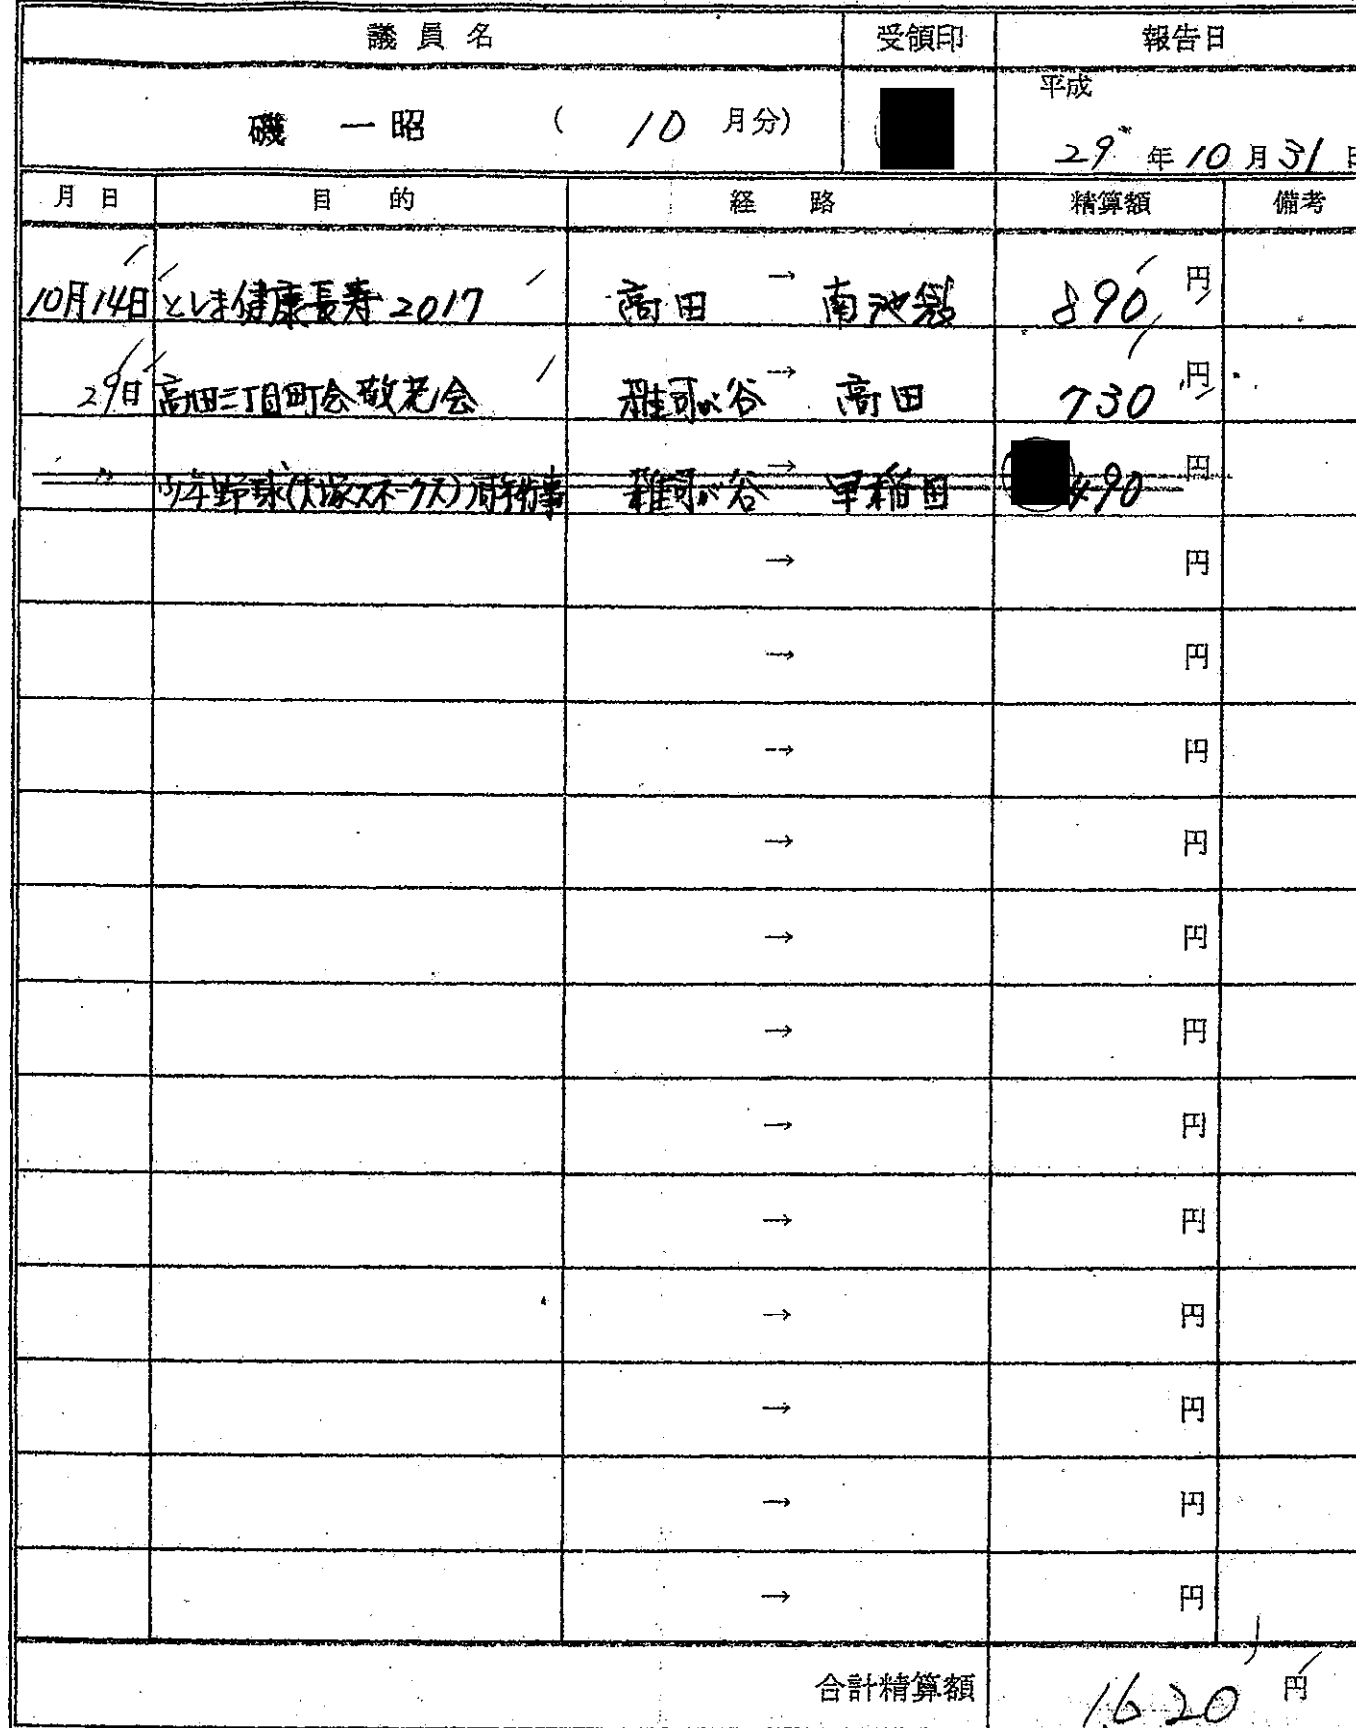 議員名 受領印 報告日
磯 一昭 ( 10 月分) 平成 29 年 10 月 31 日
月日 目的 経路 精算額 備考
10月14日 としま健康長寿2017 高田 → 南池袋 890 円
29日 高田三丁目町会敬老会 雑司が谷 → 高田 730 円
〃 少年野球 雑司が谷 → 早稲田 490 円
→ 円
→ 円
→ 円
→ 円
→ 円
→ 円
→ 円
→ 円
→ 円
→ 円
→ 円
→ 円
合計精算額 1,620 円